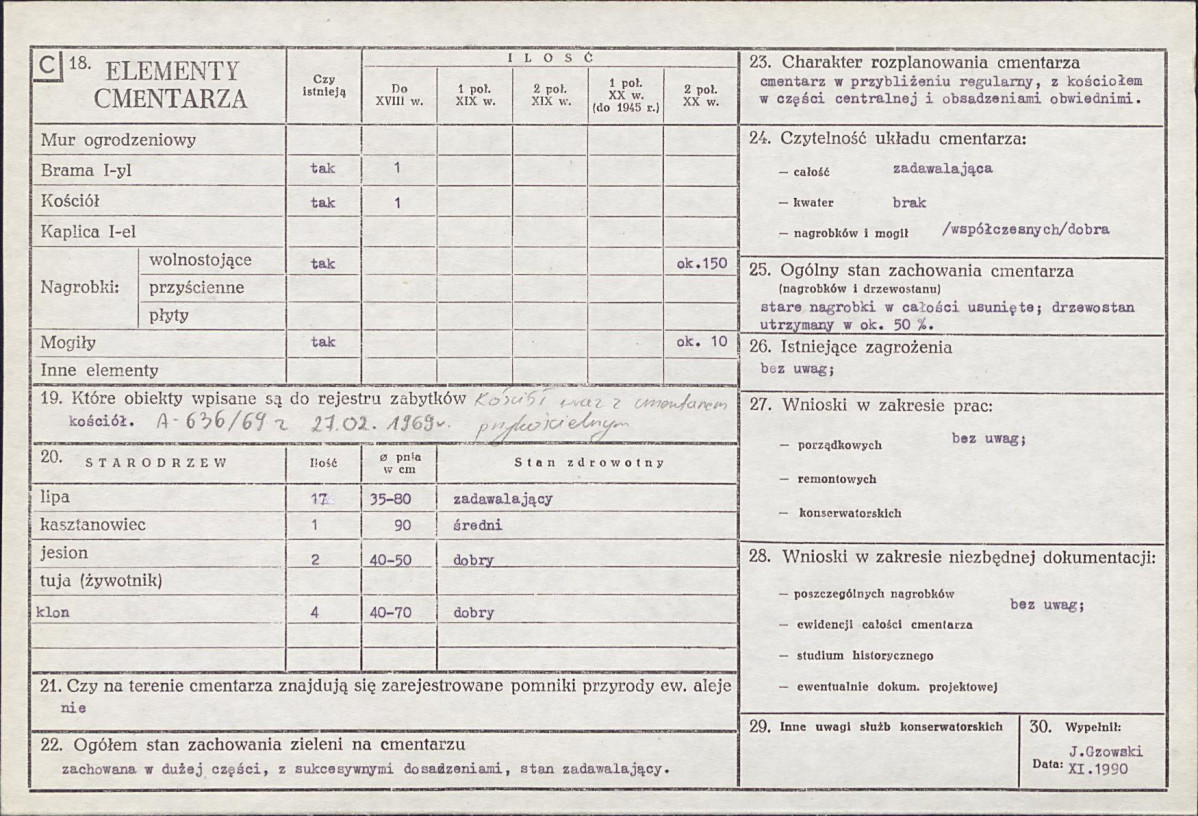 C 18. ELEMENTY CMENTARZA
Czy istnieją
I L O Ś Ć
Do XVIII w.
1 poł. XIX w.
2 poł. XIX w.
1 poł. XX w. (do 1945 r.)
2 poł. XX w.
Mur ogrodzeniowy
Brama I-yl tak 1
Kościół tak 1
Kaplica I-el
Nagrobki:
wolnostojące tak ok.150
przyścienne
płyty
Mogiły tak ok. 10
Inne elementy
19. Które obiekty wpisane są do rejestru zabytków Kościół wraz z cmentarzem
kościół. A-636/69 z 27.02.1969r. przykościelnym
20. STARODRZEW Ilość ø pnia w cm Stan zdrowotny
lipa 17 35-80 zadawalający
kasztanowiec 1 90 średni
jesion 2 40-50 dobry
tuja (żywotnik)
klon 4 40-70 dobry
21. Czy na terenie cmentarza znajdują się zarejestrowane pomniki przyrody ew. aleje
nie
22. Ogółem stan zachowania zieleni na cmentarzu
zachowana w dużej części, z sukcesywnymi dosadzeniami, stan zadawalający.
23. Charakter rozplanowania cmentarza
cmentarz w przybliżeniu regularny, z kościołem
w części centralnej i obsadzeniami obwiednimi.
24. Czytelność układu cmentarza:
— całość zadawalająca
— kwater brak
— nagrobków i mogił /współczesnych/dobra
25. Ogólny stan zachowania cmentarza
(nagrobków i drzewostanu)
stare nagrobki w całości usunięte; drzewostan
utrzymany w ok. 50 %.
26. Istniejące zagrożenia
bez uwag;
27. Wnioski w zakresie prac:
— porządkowych bez uwag;
— remontowych
— konserwatorskich
28. Wnioski w zakresie niezbędnej dokumentacji:
— poszczególnych nagrobków bez uwag;
— ewidencji całości cmentarza
— studium historycznego
— ewentualnie dokum. projektowej
29. Inne uwagi służb konserwatorskich
30. Wypełnił:
J.Gzowski
Data: XI.1990